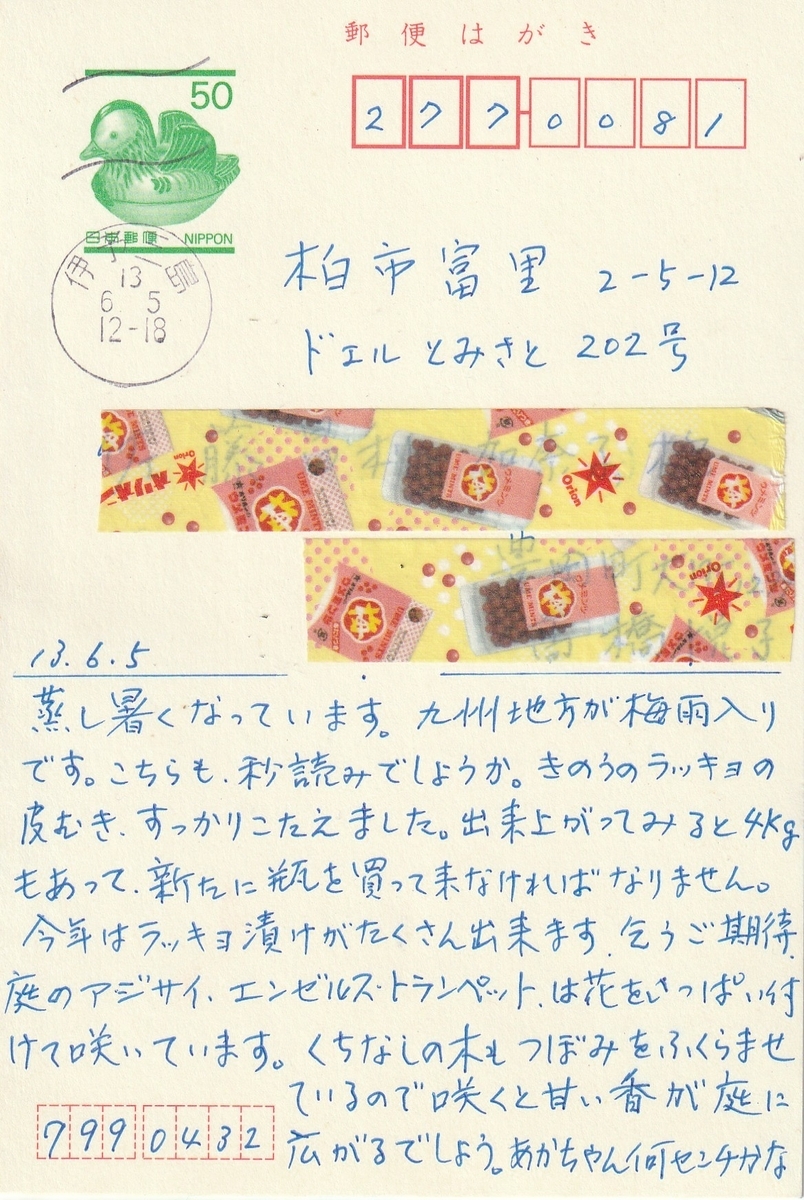 郵便はがき
50
日本郵便 NIPPON
277-0081
伊予三島
13
6 5
12-18
柏市富里 2-5-12
ドエルとみさと 202号
Orion
オリオン
梅
UME MINTS
ウメミンツ
Orion
梅
UME MINTS
梅
UME MINTS
ウメミンツ
Orion
梅
13.6.5
蒸し暑くなっています。九州地方が梅雨入り
です。こちらも、秒読みでしょうか。きのうのラッキョの
皮むき、すっかりこたえました。出来上がってみると4kg
もあって、新たに瓶を買って来なければなりません。
今年はラッキョ漬けがたくさん出来ます、乞うご期待、
庭のアジサイ、エンゼルス・トランペット、は花をいっぱい付
けて咲いています。くちなしの木もつぼみをふくらませ
ているので咲くと甘い香が庭に
広がるでしょう。あかちゃん何センチかな
7990432